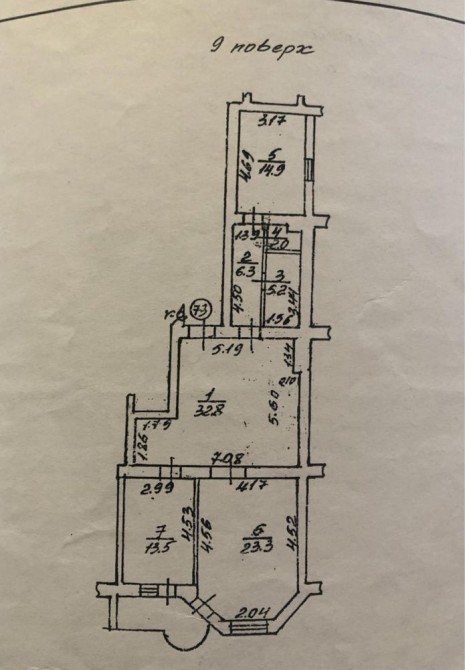 9 поверх
3.17
4.69
5
14.9
1.39
4
2.0
2
6.3
3
5.2
4.50
3.44
1.56
73
5.19
1.34
210
1
32.8
5.60
1.79
1.86
7.08
2.99
4.17
4.53
4.56
4.52
7
13.5
6
23.3
2.04